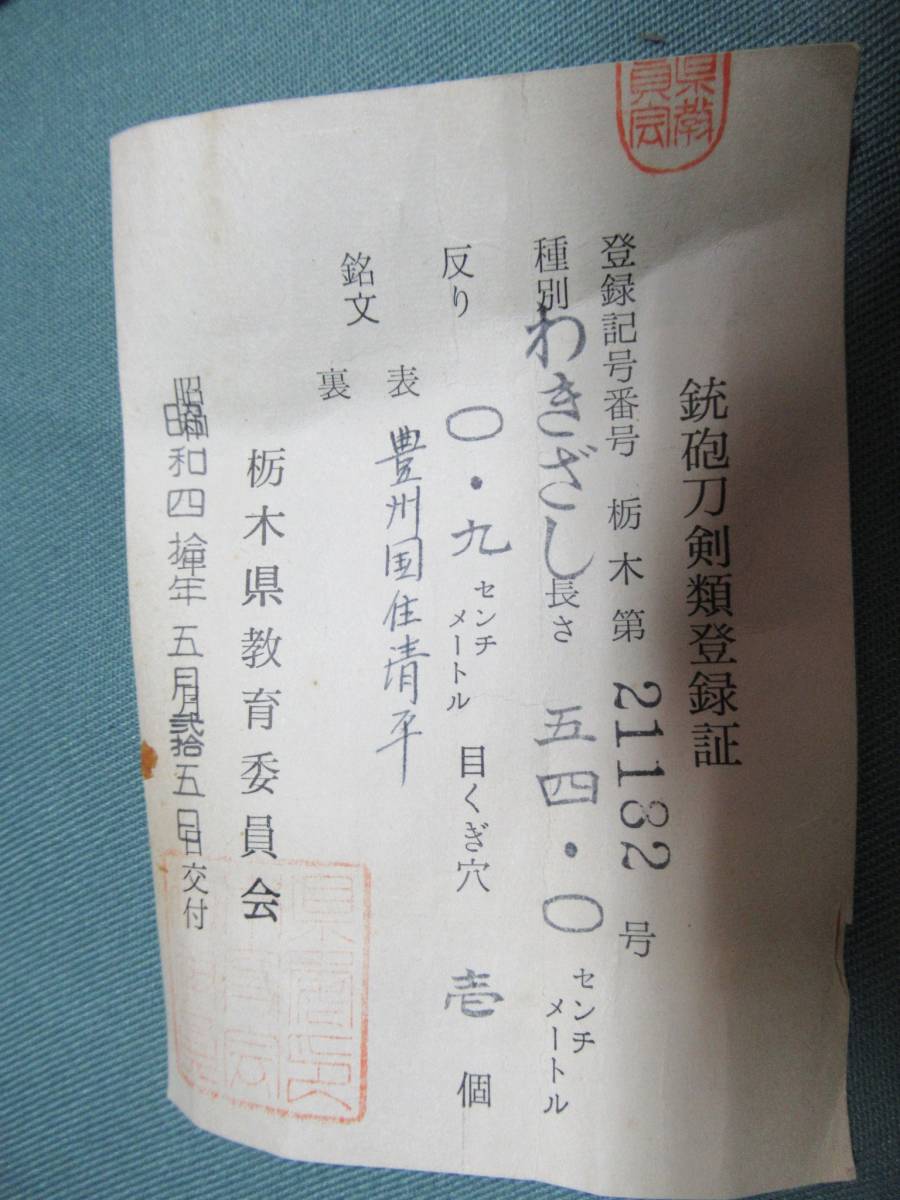 県教
員会
銃砲刀剣類登録証
登録記号番号 栃木第 21182 号
種別 わきざし 長さ 五四・〇 センチメートル
反り 〇・九 センチメートル 目くぎ穴 壱 個
銘文 表 豊州国住清平
裏
栃木県教育委員会
昭和四拾年五月弐拾五日交付